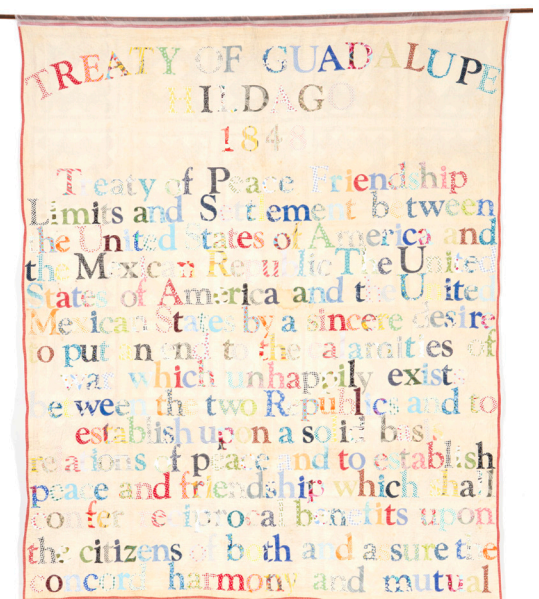 TREATY OF GUADALUPE
HILDAGO
1848
Treaty of Peace Friendship
Limits and Settlement between
the United States of America and
the Mexican Republic The United
States of America and the United
Mexican States by a sincere desire
to put an end to the calamities of
war which unhappily exist
between the two Republics and to
establish upon a solid basis
relations of peace and to establish
peace and friendship which shall
confer reciprocal benefits upon
the citizens of both and assure the
concord harmony and mutual